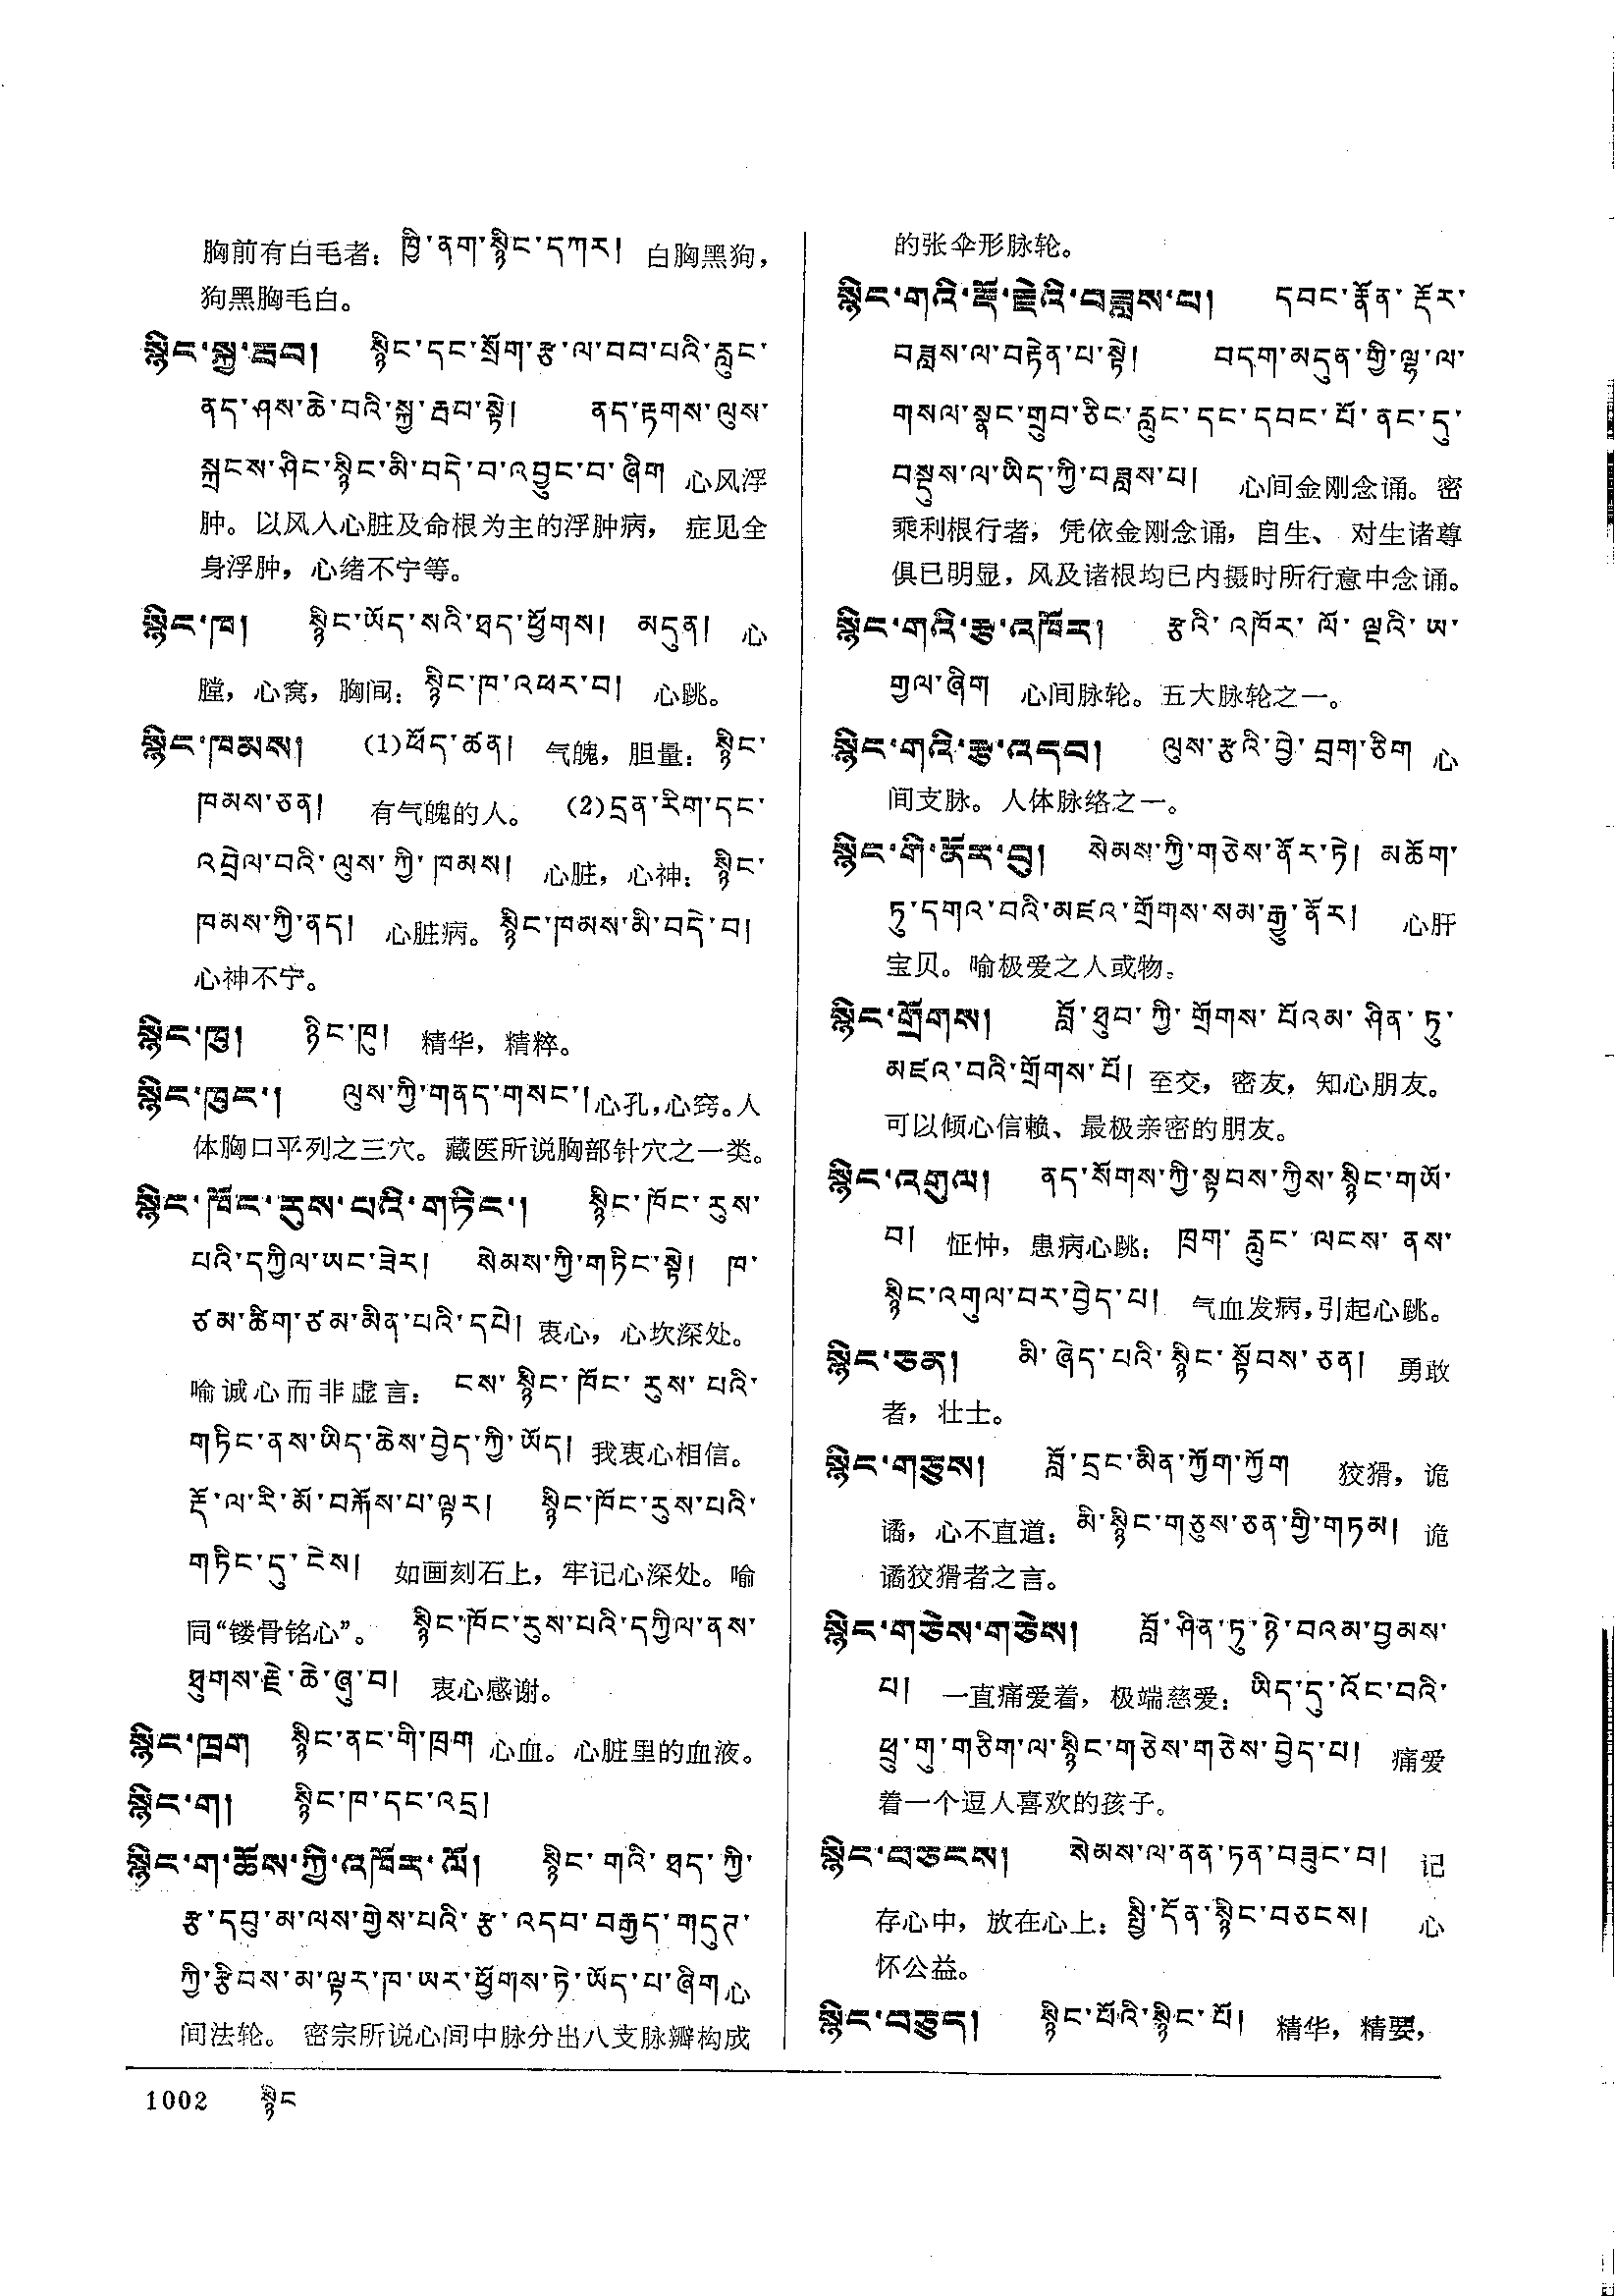 胸前有白毛者：ཁྱི་ནག་སྙིང་དཀར། 白胸黑狗，
狗黑胸毛白。
སྙིང་སྐྱ་རྦབ། སྙིང་དང་སྲོག་རྩ་ལ་བབ་པའི་རླུང་
ནད་ཤས་ཆེ་བའི་སྐྱ་རྦབ་སྟེ། ནད་རྟགས་ལུས་
སྐྲངས་ཤིང་སྙིང་མི་བདེ་བ་འབྱུང་བ་ཞིག 心风浮
肿。以风入心脏及命根为主的浮肿病， 症见全
身浮肿，心绪不宁等。
སྙིང་ཁ། སྙིང་ཡོད་སའི་ཐད་ཕྱོགས། མདུན། 心
膛，心窝，胸间：སྙིང་ཁ་འཕར་བ། 心跳。
སྙིང་ཁམས། (1)ཕོད་ཚན། 气魄，胆量：སྙིང་
ཁམས་ཅན། 有气魄的人。 (2)དྲན་རིག་དང་
འབྲེལ་བའི་ལུས་ཀྱི་ཁམས། 心脏，心神：སྙིང་
ཁམས་ཀྱི་ནད། 心脏病。སྙིང་ཁམས་མི་བདེ་བ།
心神不宁。
སྙིང་ཁུ། ཉིང་ཁུ། 精华，精粹。
སྙིང་ཁུང་། ལུས་ཀྱི་གནད་གསང་། 心孔，心窍。人
体胸口平列之三穴。藏医所说胸部针穴之一类。
སྙིང་ཁོང་རུས་པའི་གཏིང་། སྙིང་ཁོང་རུས་
པའི་དཀྱིལ་ཡང་ཟེར། སེམས་ཀྱི་གཏིང་སྟེ། ཁ་
ཙམ་ཚིག་ཙམ་མིན་པའི་དཔེ། 衷心，心坎深处。
喻诚心而非虚言： ངས་སྙིང་ཁོང་རུས་པའི་
གཏིང་ནས་ཡིད་ཆེས་བྱེད་ཀྱི་ཡོད། 我衷心相信。
རྡོ་ལ་རི་མོ་བརྐོས་པ་ལྟར། སྙིང་ཁོང་རུས་པའི་
གཏིང་དུ་ངེས། 如画刻石上，牢记心深处。喻
同“镂骨铭心”。 སྙིང་ཁོང་རུས་པའི་དཀྱིལ་ནས་
ཐུགས་རྗེ་ཆེ་ཞུ་བ། 衷心感谢。
སྙིང་ཁྲག སྙིང་ནང་གི་ཁྲག 心血。心脏里的血液。
སྙིང་ག། སྙིང་ཁ་དང་འདྲ།
སྙིང་ག་ཆོས་ཀྱི་འཁོར་ལོ། སྙིང་གའི་ཐད་ཀྱི་
རྩ་དབུ་མ་ལས་གྱེས་པའི་རྩ་འདབ་བརྒྱད་གདུཊ་
ཀྱི་རྩིབས་མ་ལྟར་ཁ་ཡར་ཕྱོགས་ཏེ་ཡོད་པ་ཞིག心
间法轮。 密宗所说心间中脉分出八支脉瓣构成
的张伞形脉轮。
སྙིང་གའི་རྡོ་རྗེའི་བཟླས་པ། དབང་རྣོན་རྡོར་
བཟླས་ལ་བརྟེན་པ་སྟེ། བདག་མདུན་གྱི་ལྷ་ལ་
གསལ་སྣང་གྲུབ་ཅིང་རླུང་དང་དབང་པོ་ནང་དུ་
བསྡུས་ལ་ཡིད་ཀྱི་བཟླས་པ། 心间金刚念诵。密
乘利根行者，凭依金刚念诵，自生、 对生诸尊
俱已明显，风及诸根均已内摄时所行意中念诵。
སྙིང་གའི་རྩ་འཁོར། རྩའི་འཁོར་ལོ་ལྔའི་ཡ་
གྱལ་ཞིག 心间脉轮。五大脉轮之一。
སྙིང་གའི་རྩ་འདབ། ལུས་རྩའི་བྱེ་བྲག་ཅིག 心
间支脉。人体脉络之一。
སྙིང་གི་ནོར་བུ། སེམས་ཀྱི་གཅེས་ནོར་ཏེ། མཆོག་
ཏུ་དགའ་བའི་མཛའ་གྲོགས་སམ་རྒྱུ་ནོར། 心肝
宝贝。喻极爱之人或物。
སྙིང་གྲོགས། བློ་ཐུབ་ཀྱི་གྲོགས་པོའམ་ཤིན་ཏུ་
མཛའ་བའི་གྲོགས་པོ། 至交，密友，知心朋友。
可以倾心信赖、最极亲密的朋友。
སྙིང་འགུལ། ནད་སོགས་ཀྱི་སྟབས་ཀྱིས་སྙིང་གཡོ་
བ། 怔忡，患病心跳：ཁྲག་རླུང་ལངས་ནས་
སྙིང་འགུལ་བར་བྱེད་པ། 气血发病，引起心跳。
སྙིང་ཅན། མི་ཞེད་པའི་སྙིང་སྟོབས་ཅན། 勇敢
者，壮士。
སྙིང་གཅུས། བློ་དྲང་མིན་ཀྱོག་ཀྱོག 狡猾，诡
谲，心不直道：མི་སྙིང་གཅུས་ཅན་གྱི་གཏམ། 诡
谲狡猾者之言。
སྙིང་གཅེས་གཅེས། བློ་ཤིན་ཏུ་ཉེ་བའམ་བྱམས་
པ། 一直痛爱着，极端慈爱：ཡིད་དུ་འོང་བའི་
ཕྲུ་གུ་གཅིག་ལ་སྙིང་གཅེས་གཅེས་བྱེད་པ། 痛爱
着一个逗人喜欢的孩子。
སྙིང་བཅངས། སེམས་ལ་ནན་ཏན་བཟུང་བ། 记
存心中，放在心上：སྤྱི་དོན་སྙིང་བཅངས། 心
怀公益。
སྙིང་བཅུད། སྙིང་པོའི་སྙིང་པོ། 精华，精要，
1002 སྙིང